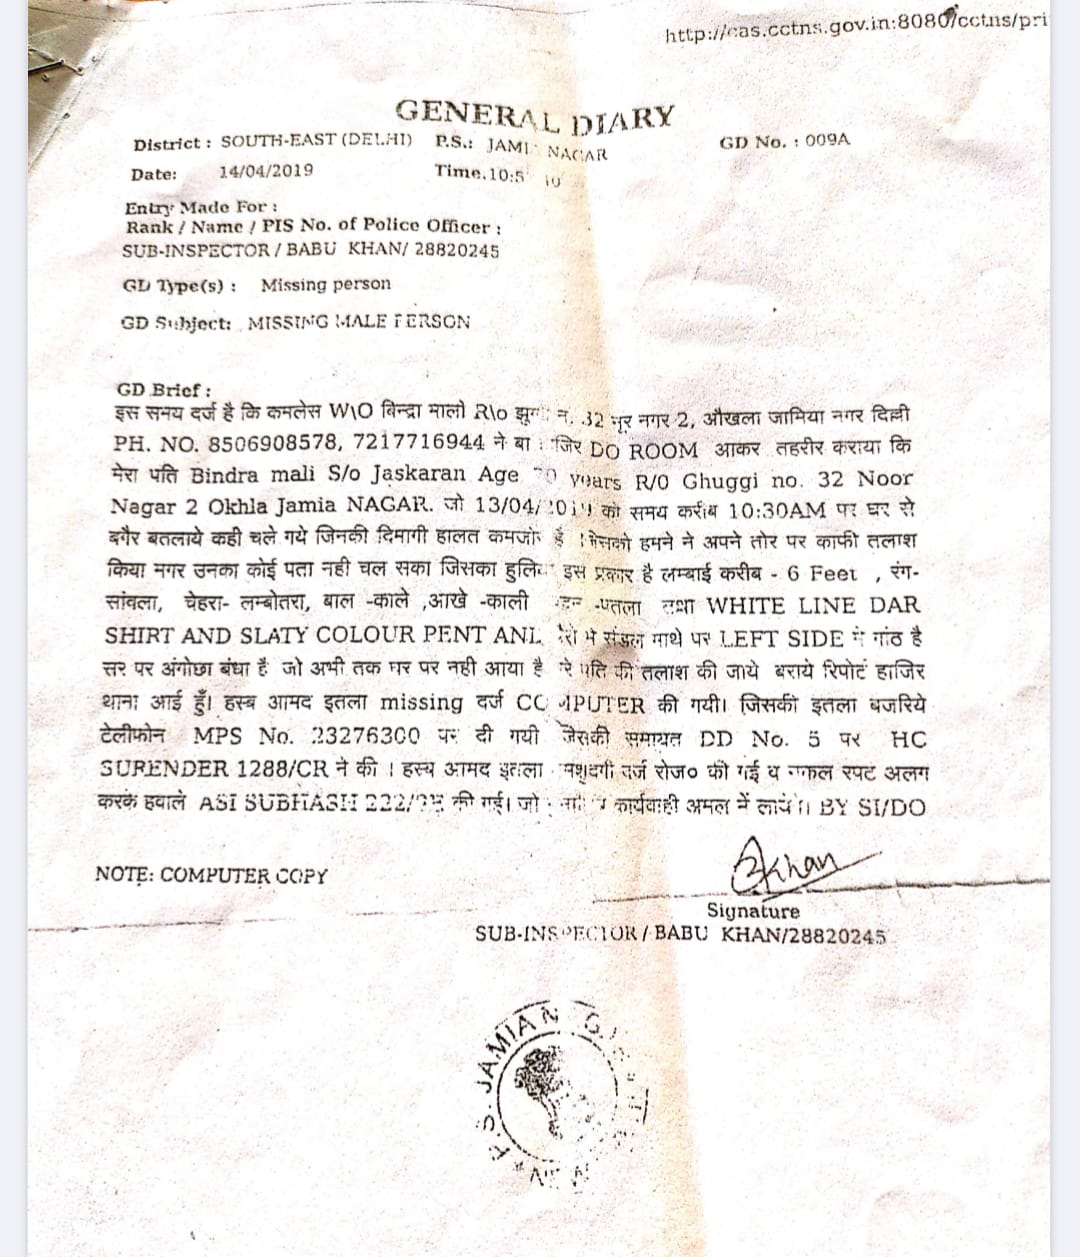 http://cas.cctns.gov.in:8080/cctns/pri
GENERAL DIARY
District : SOUTH-EAST (DELHI) P.S.: NAGAR GD No. : 009A
Date: 14/04/2019 Time.
Entry Made For :
Rank / Name / PIS No. of Police Officer :
SUB-INSPECTOR / BABU KHAN/ 28820245
GD Type(s) : Missing person
GD Subject: MISSING MALE PERSON
GD Brief :
इस समय दर्ज है कि कमलेस W\O बिन्द्रा मालो R\o न. 32 नूर नगर 2, औखला जामिया नगर दिल्ली
PH. NO. 8506908578, 7217716944 ने DO ROOM आकर तहरीर कराया कि
मेरा पति Bindra mali S/o Jaskaran Age years R/0 Ghuggi no. 32 Noor
Nagar 2 Okhla Jamia NAGAR. जो को समय करीब 10:30AM पर घर से
बगैर बतलाये कही चले गये जिनकी दिमागी हालत है हमने ने अपने तोर पर काफी तलाश
किया मगर उनका कोई पता नही चल सका जिसका इस प्रकार है लम्बाई करीब - 6 Feet , रंग-
सांवला, चेहरा- लम्बोतरा, बाल -काले ,आखे -काली -पतला तथा WHITE LINE DAR
SHIRT AND SLATY COLOUR PENT मे संडल माथे पर LEFT SIDE मे गांठ है
सर पर अंगोछा बंधा है जो अभी तक घर पर नही आया है पति की तलाश की जाये बराये रिपोर्ट हाजिर
थाना आई हूँ। हस्ब आमद इतला missing दर्ज COMPUTER की गयी। जिसकी इतला बजरिये
टेलीफोन MPS No. 23276300 पर दी गयी जिसकी समायत DD No. 5 पर HC
SURENDER 1288/CR ने की । हस्ब आमद इतला दर्ज रोज० की गई व नकल रपट अलग
करके हवाले ASI SUBHASH की गई। जो कार्यवाही अमल में BY SI/DO
NOTE: COMPUTER COPY
Khan
Signature
SUB-INSPECTOR / BABU KHAN/28820245
P.S. JAMIA N